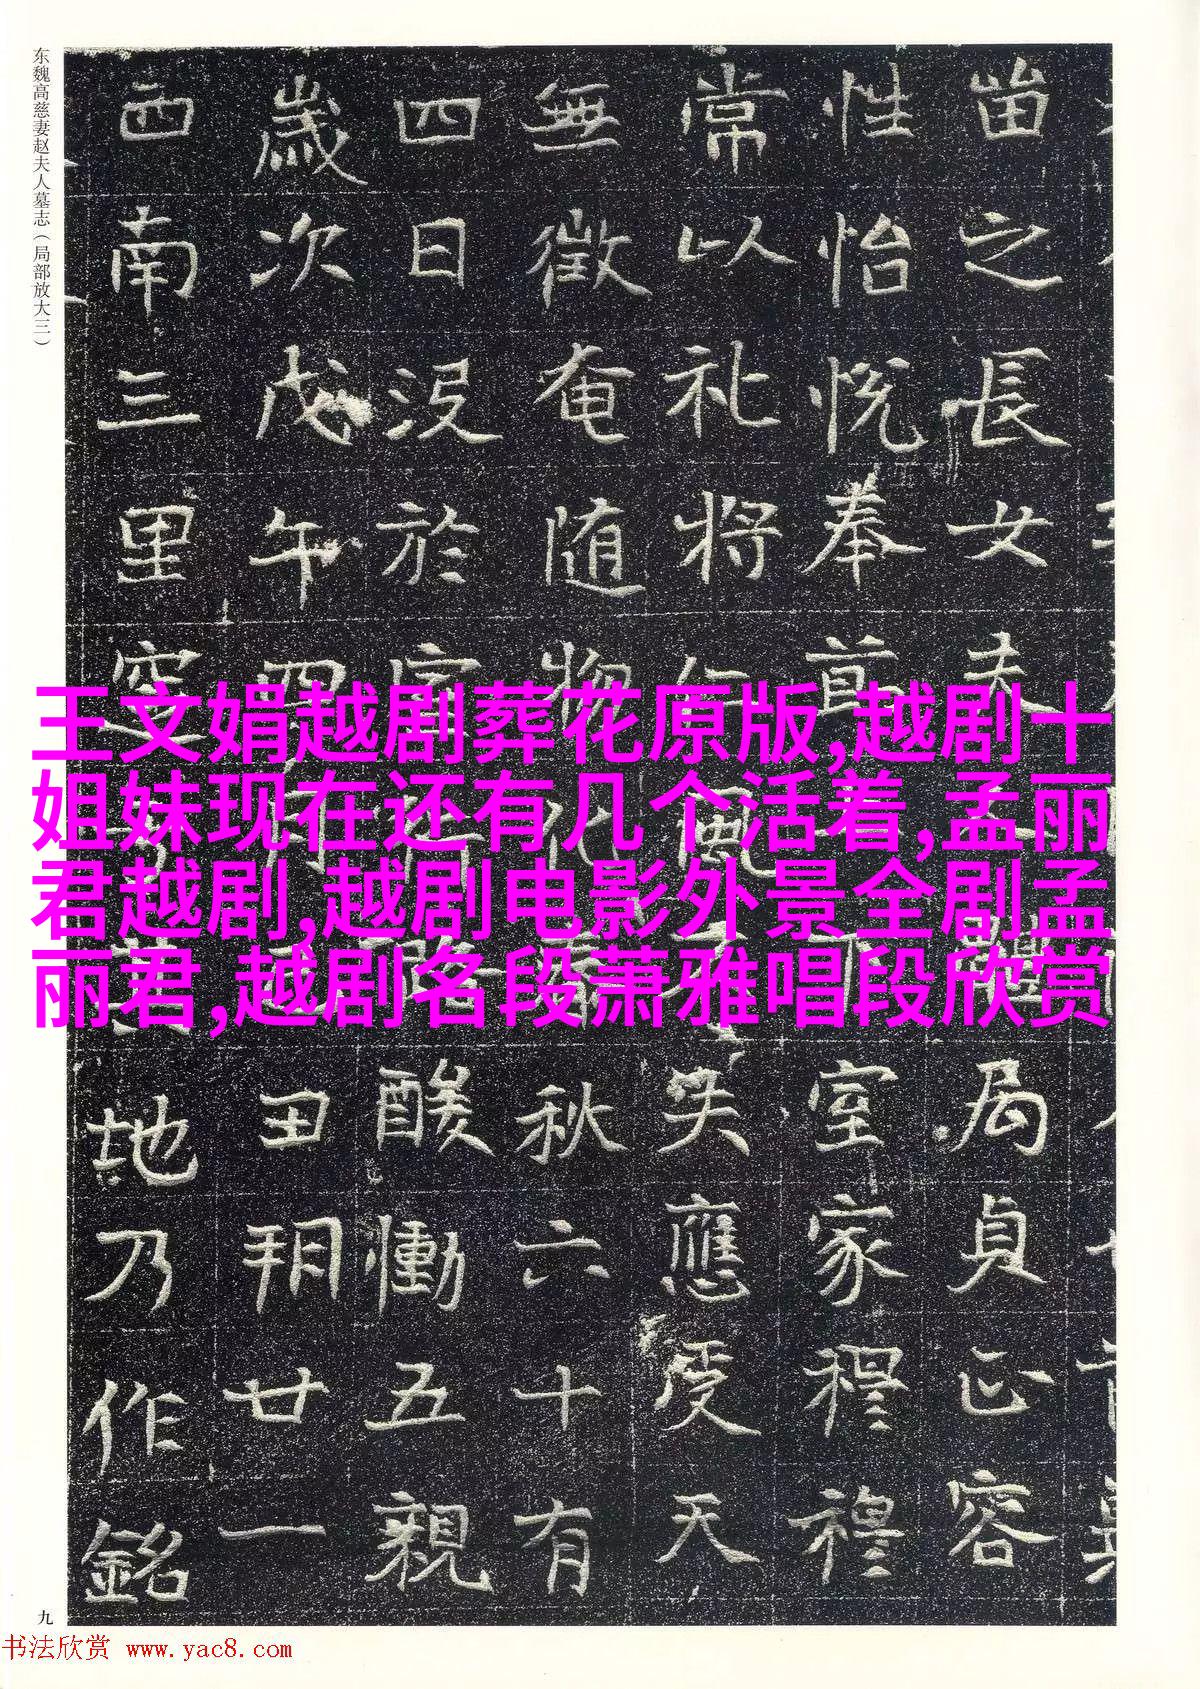 东魏高慈妻赵夫人墓志（局部放大三）
苗之長女夫體局貞正容
性怡悅奉前室家穆穆
常以礼将仁風失應受天
無徵奄随物化秋六十有
四日没於官酸慟五親
歲次戊午四月丑朔廿一
西南三里窆地乃作銘
王文娟越剧葬花原版,越剧十
姐妹现在还有几个活着,孟丽
君越剧,越剧电影外景全剧孟
丽君,越剧名段萧雅唱段欣赏
九
书法欣赏 www.yac8.com